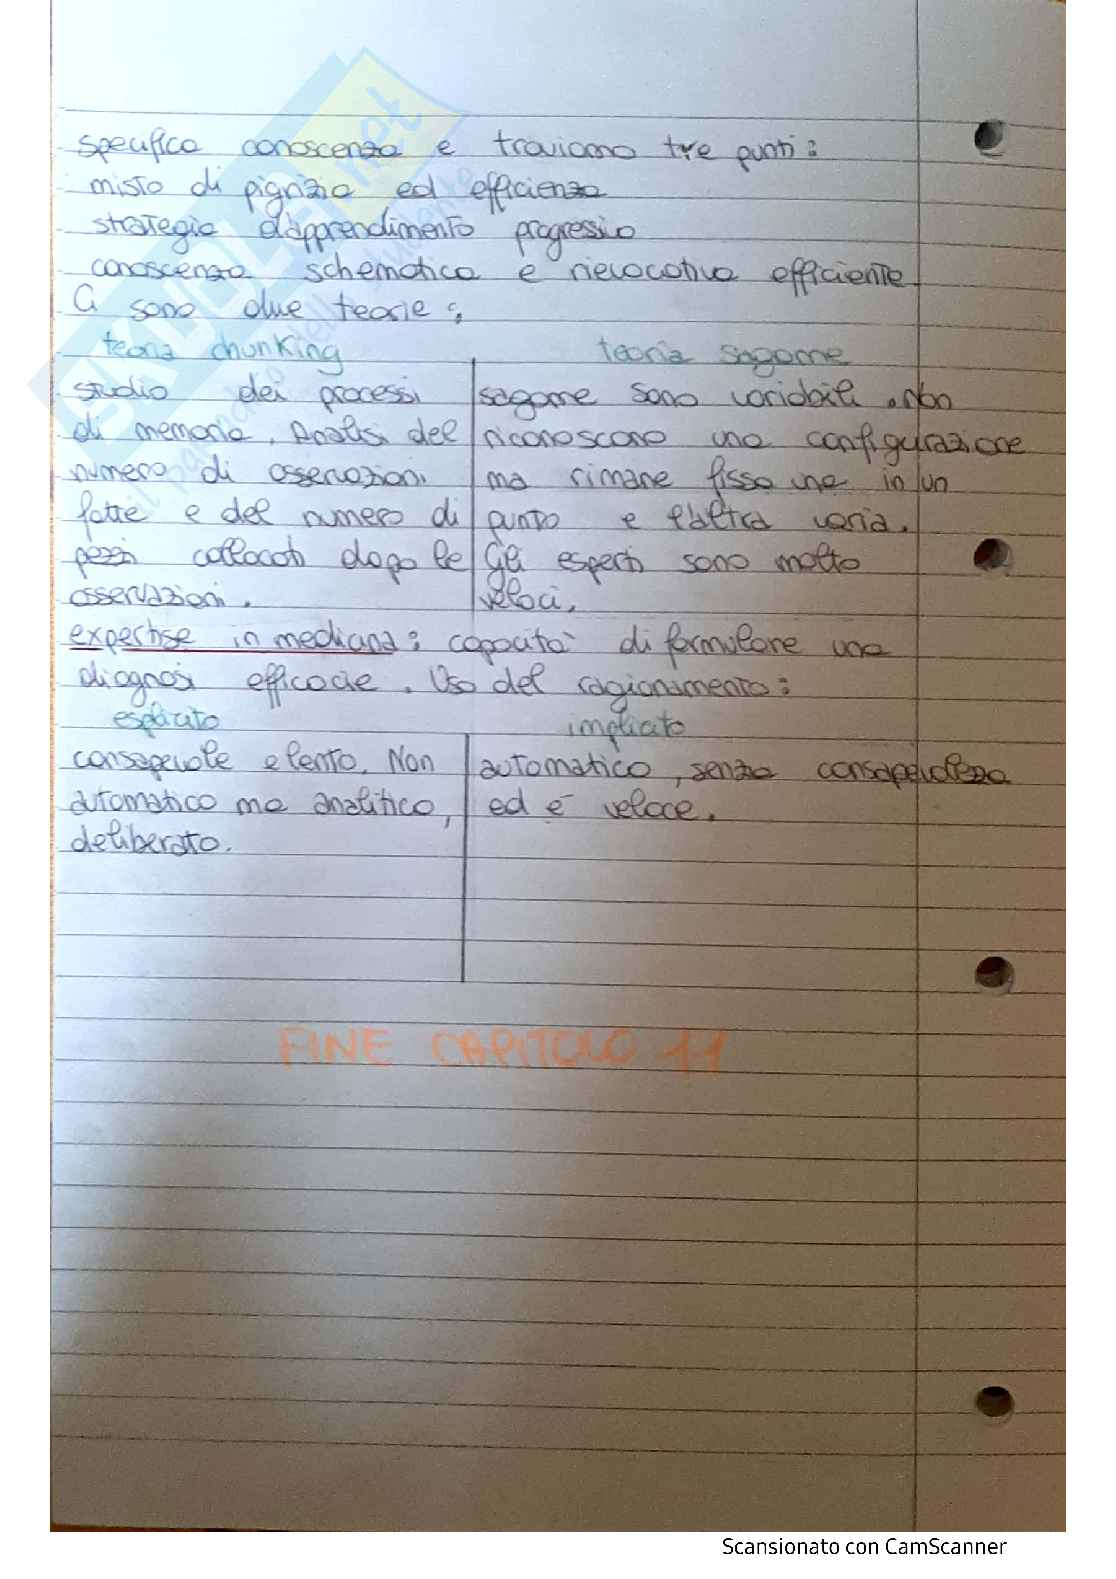 specifica conoscenza e troviamo tre punti:
misto di pigrizia ed efficienza
strategia d'apprendimento progressivo
conoscenza schematica e rievocativa efficiente
Ci sono due teorie:
teoria chunking
studio dei processi
di memoria. Analisi del
numero di osservazioni
fatte e del numero di
pezzi collocati dopo le
osservazioni.
teoria sagome
sagome sono variabili. Non
riconoscono una configurazione
ma rimane fissa una in un
punto e l'altra varia.
Gli esperti sono molto
veloci.
expertise in medicina: capacità di formulare una
diagnosi efficacie. Uso del ragionamento:
esplicito
consapevole e lento. Non
automatico ma analitico,
deliberato.
implicito
automatico, senza consapevolezza
ed è veloce.
FINE CAPITOLO 11
SKUOLA.net
Scansionato con CamScanner